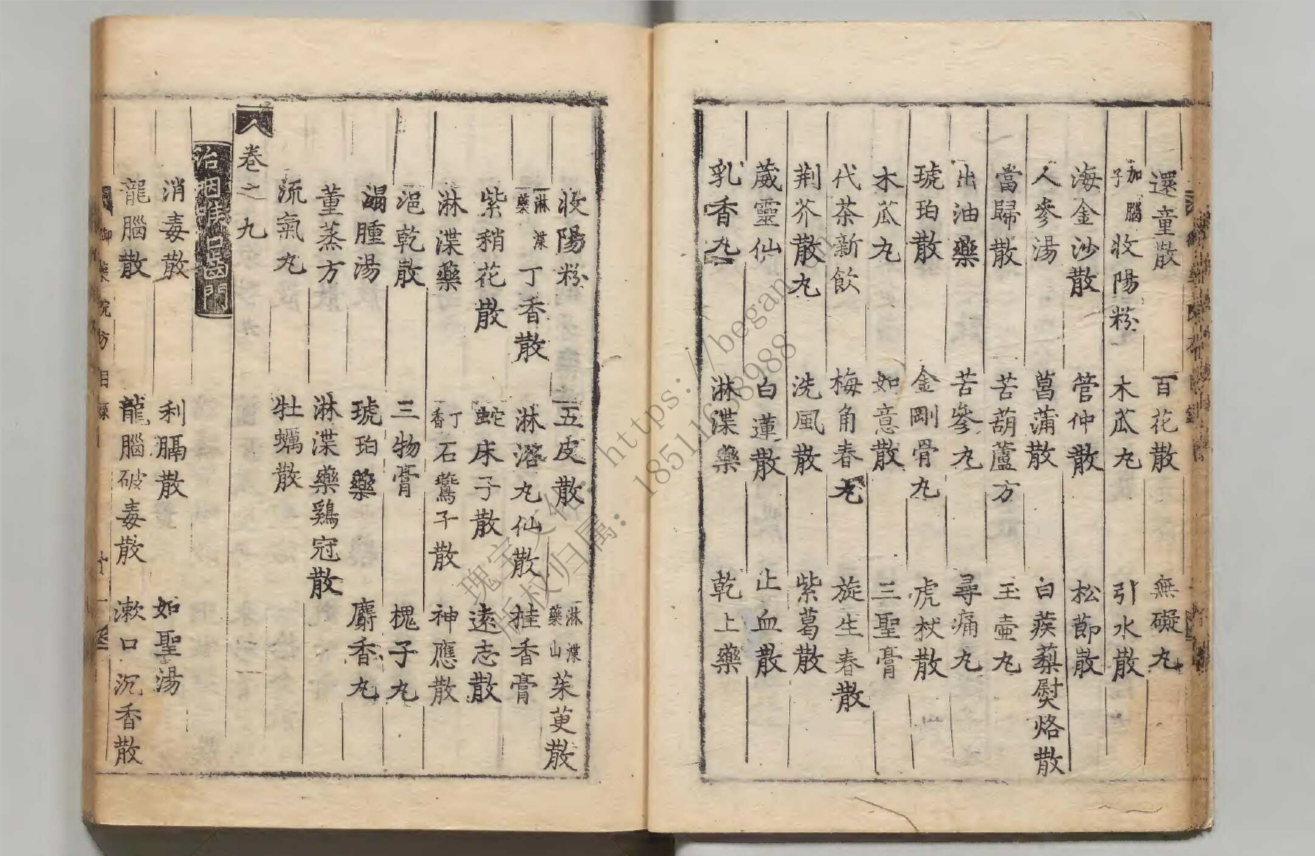 還童散 百花散 無礙丸
加腦子收陽粉 木瓜丸 引水散
海金沙散 管仲散 松節散
人參湯 菖蒲散 白蒺䔧熨烙散
當歸散 苦葫蘆方 玉壷丸
出油藥 苦參丸 尋痛丸
琥珀散 金剛骨丸 虎杖散
木瓜丸 如意散 三聖膏
代茶新飲 梅角春丸 旋生春散
荆芥散丸 洗風散 紫葛散
葳靈仙 白蓮散 止血散
乳香丸 淋渫藥 乾上藥
收陽粉 五皮散 淋渫藥山茱萸散
淋渫藥丁香散 淋溶九仙散 桂香膏
紫稍花散 蛇床子散 遠志散
淋渫藥 丁香石鷰子散 神應散
浥乾散 三物膏 槐子丸
溻腫湯 琥珀藥 麝香丸
董蒸方 淋渫藥鷄冠散
流氣丸 牡蠣散
卷之九
治咽喉口齒門
消毒散 利膈散 如聖湯
龍腦散 龍腦破毒散 漱口沉香散
御藥院方目錄
https://began
18511638988
版权归属：